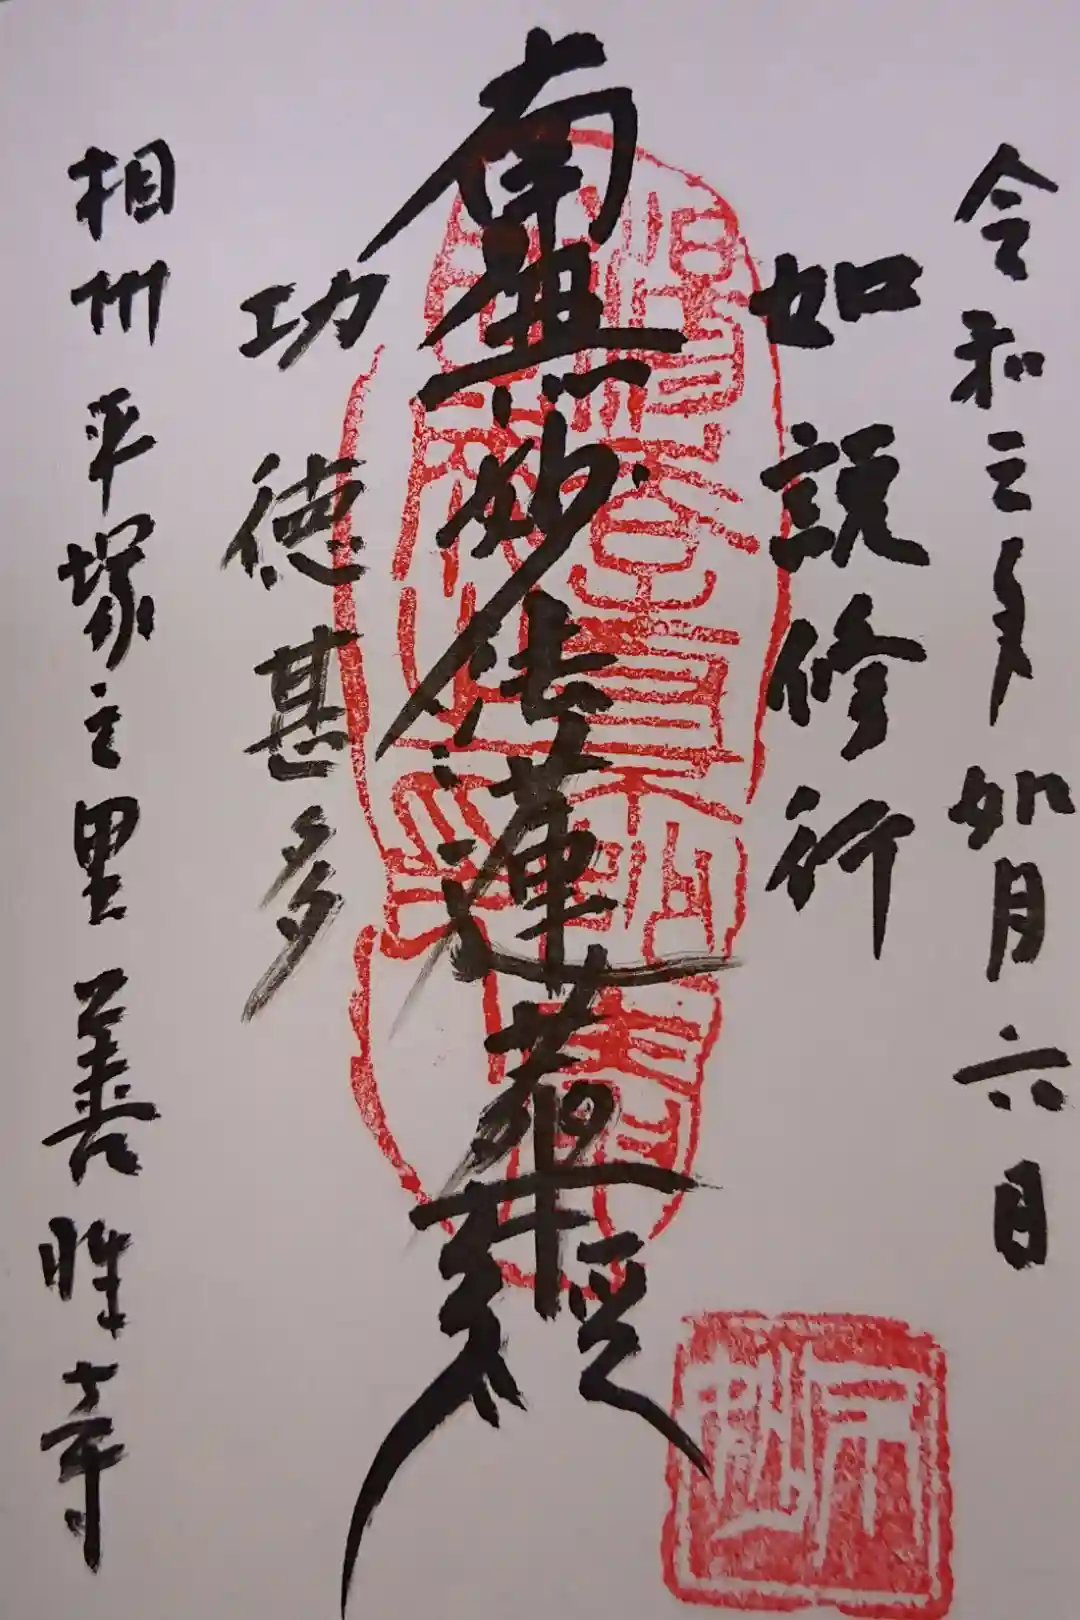 令和三年如月六日
如説修行
南無妙法蓮華經
功徳甚多
相州平塚之里善性寺